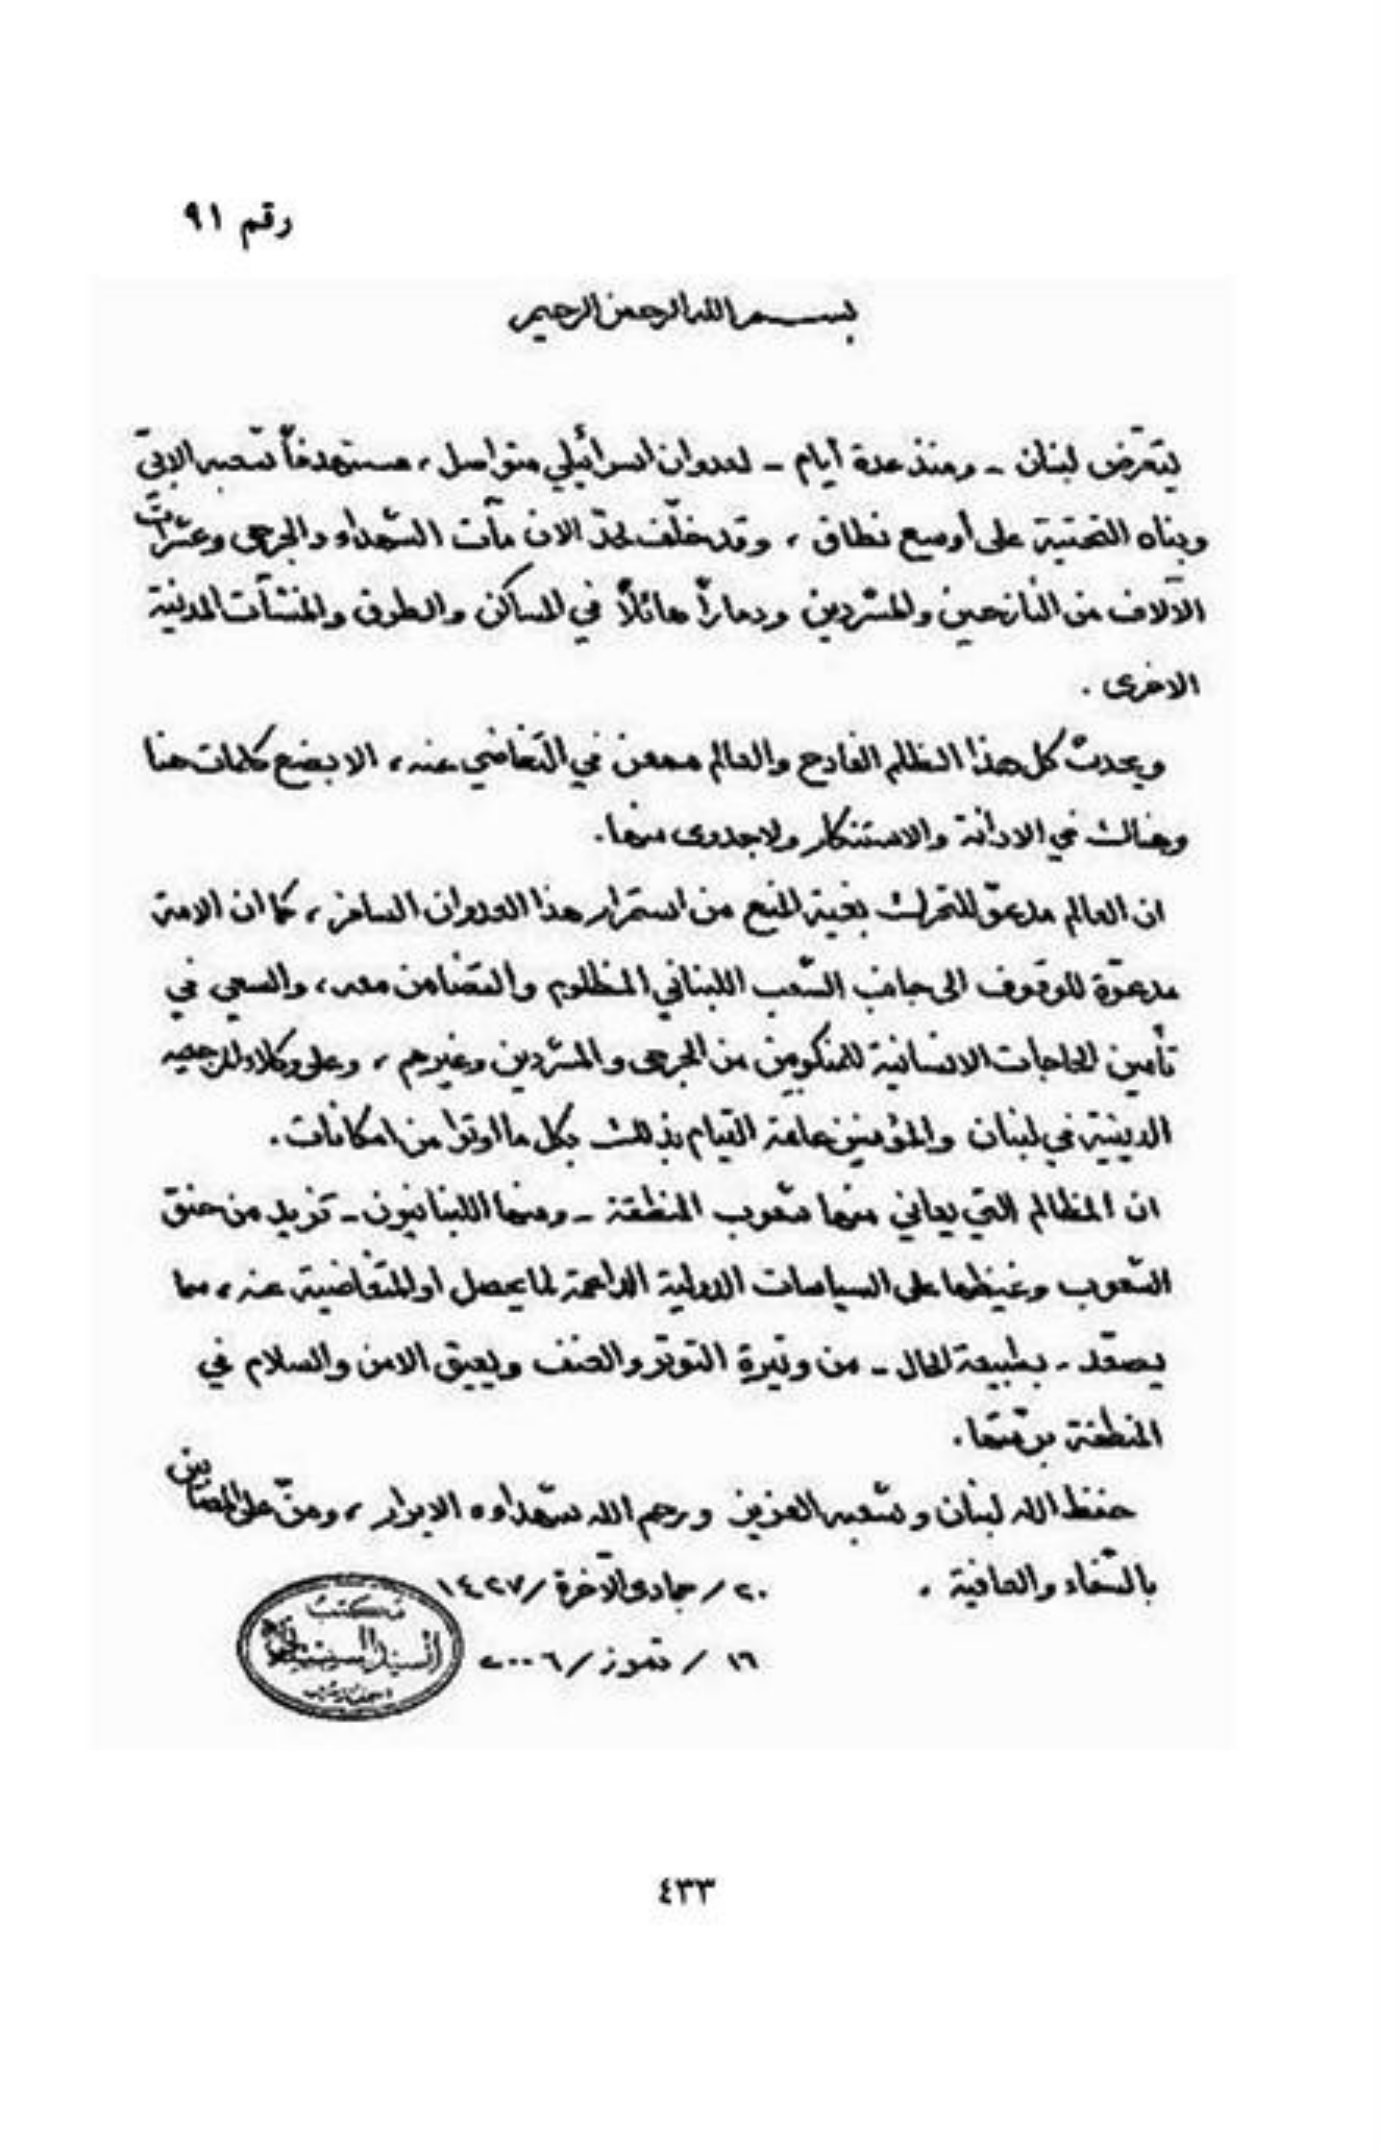 رقم ٩١
بسم الله الرحمن الرحيم
يتعرّض لبنان - ومنذ عدة أيام - لعدوان اسرائيلي متواصل، مستهدفاً شعبه الابيّ
وبناه التحتية على أوسع نطاق، وقد خلّف لحدّ الان مآت الشهداء والجرحى وعشرات
الآلاف من النازحين والمشردين ودماراً هائلاً في المساكن والطرق والمنشآت المدنية
الاخرى.
ويحدث كل هذا الظلم الفادح والعالم ممعن في التغاضي عنه، الا بضع كلمات هنا
وهناك في الادانة والاستنكار ولا جدوى منها.
ان العالم مدعوّ للتحرك بغية المنع من استمرار هذا العدوان السافر، كما ان الامة
مدعوّة للوقوف الى جانب الشعب اللبناني المظلوم والتضامن معه، والسعي في
تأمين الحاجات الانسانية للمنكوبين من الجرحى والمشردين وغيرهم، وعلى وكلاء المرجعيه
الدينية في لبنان والمؤمنين عامة القيام بذلك بكل ما اوتوا من امكانات.
ان المظالم التي يعاني منها شعوب المنطقة - ومنها اللبنانيون - تزيد من حنق
الشعوب وغيظها على السياسات الدولية الداعمة لما يحصل او المتغاضية عنه، مما
يصعّد - بطبيعة الحال - من وتيرة التوتر والعنف ويعيق الامن والسلام في
المنطقة برمّتها.
حفظ الله لبنان وشعبه العزيز ورحم الله شهداءه الابرار، ومنّ على المصابين
بالشّفاء والعافية.
٢٠/جمادى الآخرة/١٤٢٧
١٦/تموز/٢٠٠٦
مكتب
السيد السيستاني
النجف الاشرف
٤٣٣